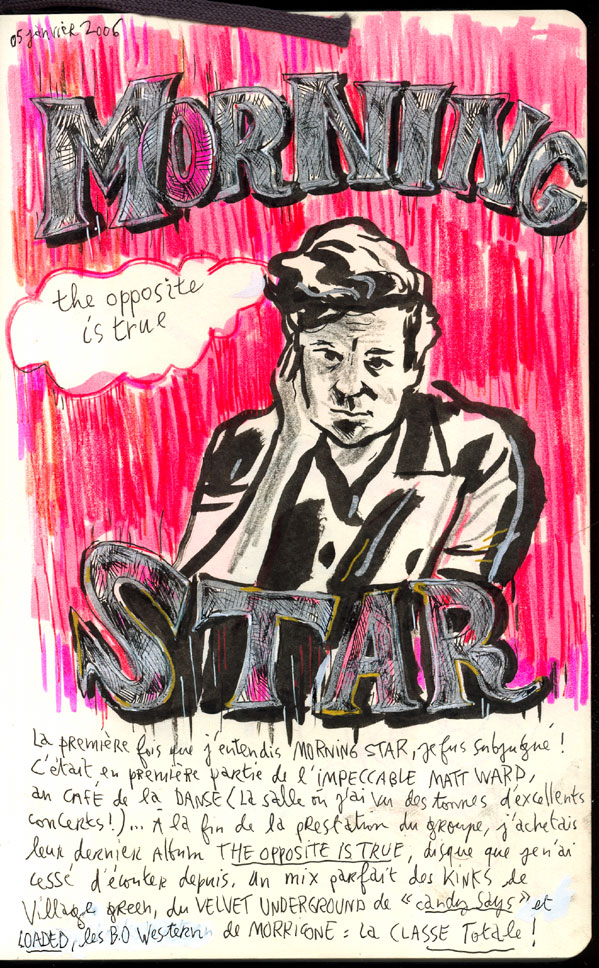 05 janvier 2006
MORNING
the opposite
is true
STAR
La première fois que j'entendis MORNING STAR, je fus subjugué !
C'était en première partie de l'IMPECCABLE MATT WARD,
au CAFÉ de la DANSE (La salle où j'ai vu des tonnes d'excellents
concerts !.)... À la fin de la prestation du groupe, j'achetais
leur dernier Album THE OPPOSITE IS TRUE, disque que je n'ai
cessé d'écouter depuis. Un mix parfait des KINKS de
Village green, du VELVET UNDERGROUND de « candy says » et
LOADED, les B.O Western de MORRICONE : La CLASSE Totale !